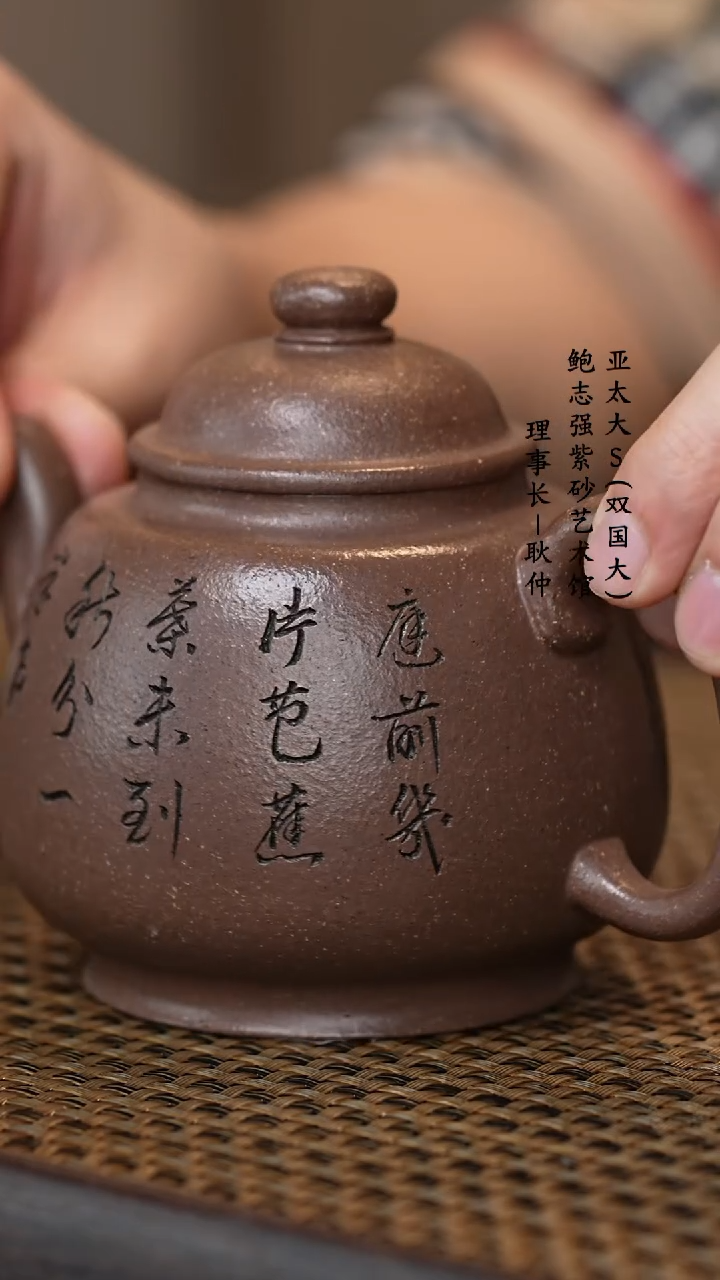 亚太大S(双国大)
鲍志强紫砂艺术馆
理事长-耿仲
庭前幾
片芭蕉
葉未到
秋分一